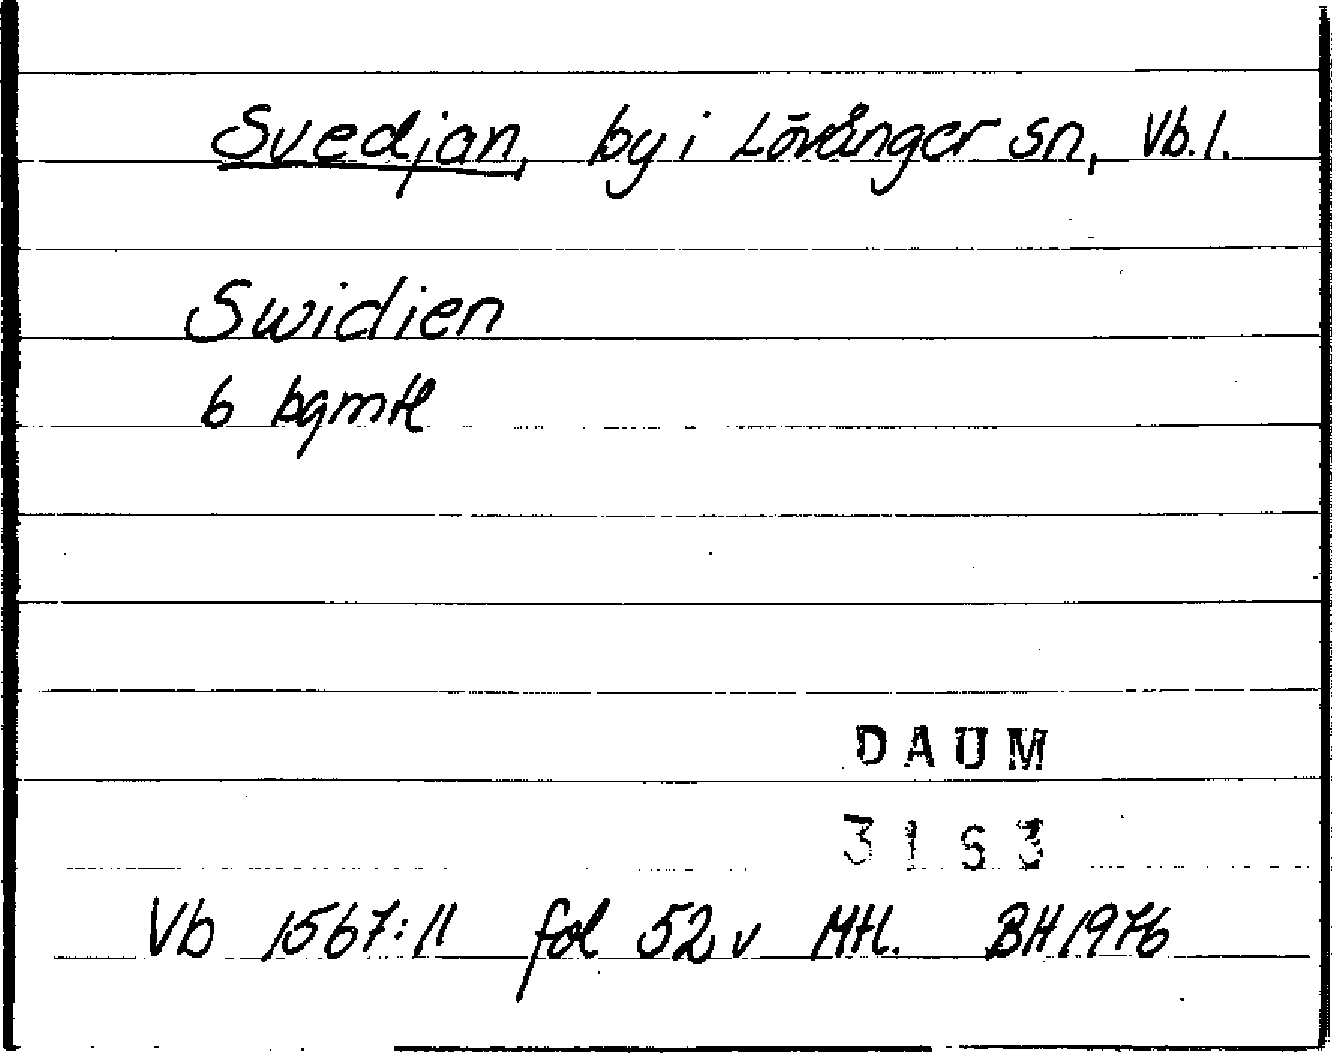 Svedjan, by i Lövånger sn, Vb.l.
Swidien
6 bgmtl
DAUM
3153
Vb 1567:11 fol 52 v Mtl. BH 1976